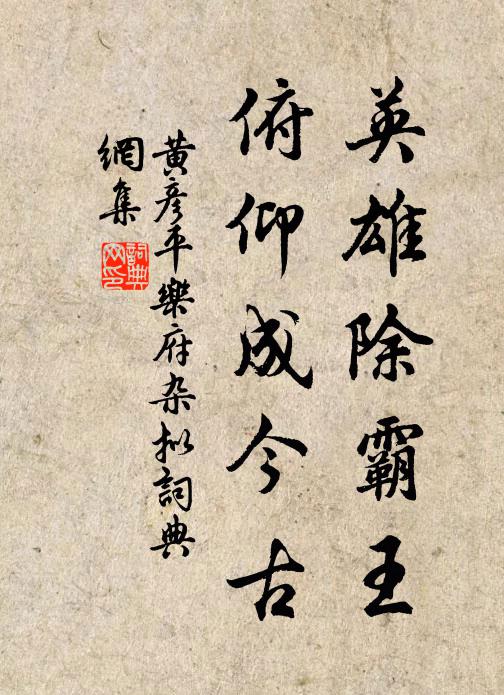 英雄除霸王
俯仰成今古
黄彦平樂府杂拟詞典
網集
詞典
网印